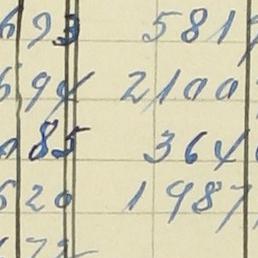 693 5817
694 2100
85 364
620 1987
72